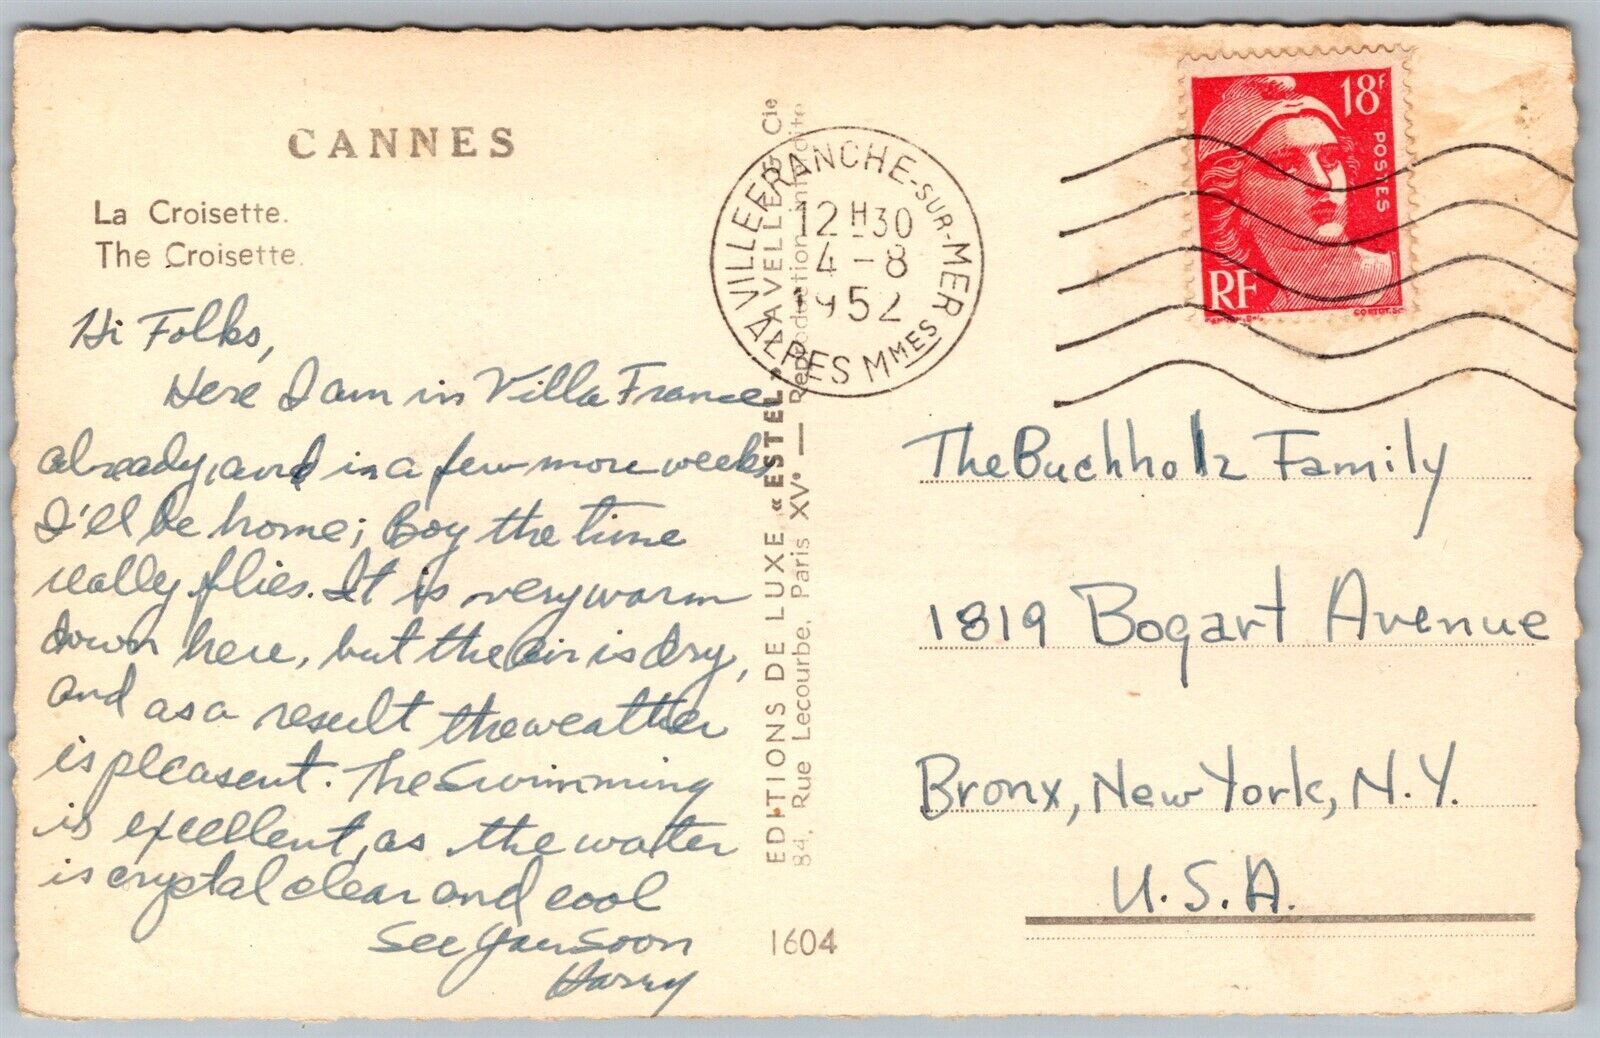 CANNES
La Croisette.
The Croisette.
Hi Folks,
Here I am in Villa France
already, and in a few more weeks
I'll be home; Boy the time
really flies. It is very warm
down here, but the air is dry,
and as a result the weather
is pleasent. The Swimming
is excellent, as the water
is crystal clear and cool
See You Soon
Harry
EDITIONS DE LUXE « ESTEL » LAVELLE & Cie
84, Rue Lecourbe, Paris XVe — Reproduction interdite
1604
VILLEFRANCHE-SUR-MER
12 H 30
4 - 8
1952
ALPES MMES
18F
POSTES
RF
The Buchholz Family
1819 Bogart Avenue
Bronx, New York, N.Y.
U.S.A.